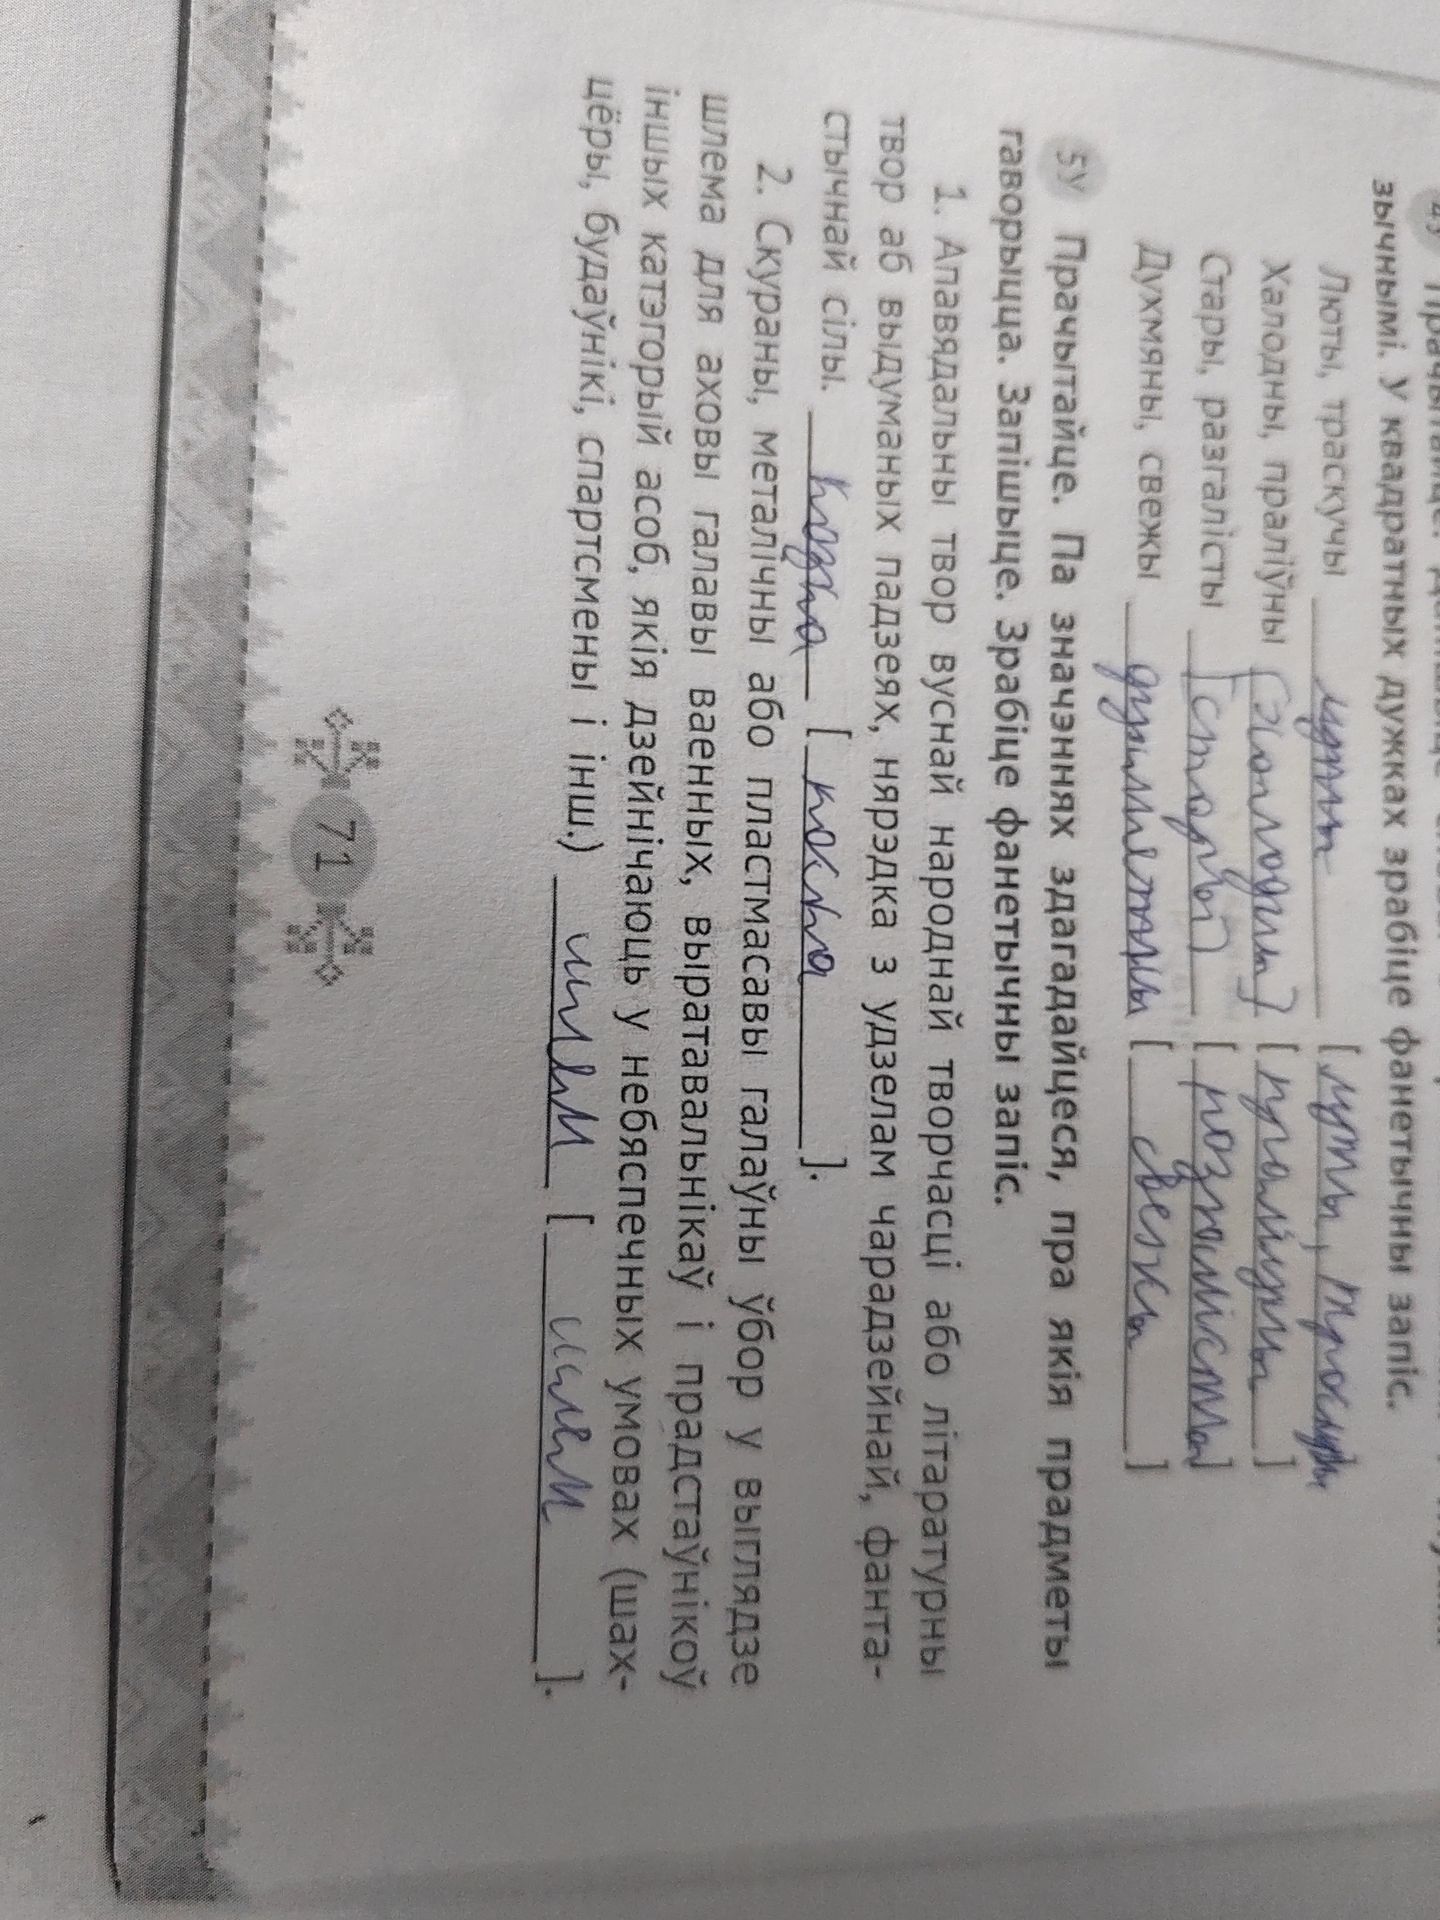 зычнымі. У квадратных дужках зрабіце фанетычны запіс.
Люты, траскучы люты [ люты,
Халодны, праліўны [
Стары, разгалісты [стары] [
Духмяны, свежы [ свежы ]
5У Прачытайце. Па значэннях здагадайцеся, пра якія прадметы
гаворыцца. Запішыце. Зрабіце фанетычны запіс.
1. Апавядальны твор вуснай народнай творчасці або літаратурны
твор аб выдуманых падзеях, нярэдка з удзелам чарадзейнай, фанта-
стычнай сілы. казка [ каска ].
2. Скураны, металічны або пластмасавы галаўны ўбор у выглядзе
шлема для аховы галавы ваенных, выратавальнікаў і прадстаўнікоў
іншых катэгорый асоб, якія дзейнічаюць у небяспечных умовах (шах-
цёры, будаўнікі, спартсмены і інш.) шлем [ шлем ].
71